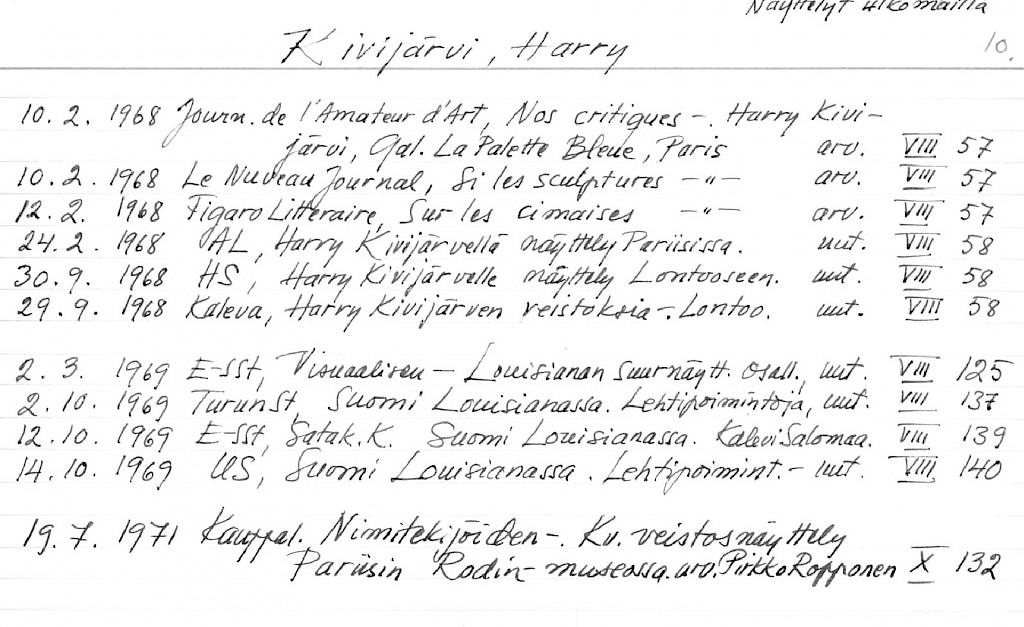 Näyttelyt ulkomailla
Kivijärvi, Harry
10.
10. 2. 1968 Journ. de l'Amateur d'Art, Nos critiques -. Harry Kivi-
järvi, Gal. La Palette Bleue, Paris arv. VIII 57
10. 2. 1968 Le Nuveau Journal, Si les sculptures —"— arv. VIII 57
12. 2. 1968 Figaro Litteraire, Sur les cimaises —"— arv. VIII 57
24. 2. 1968 AL, Harry Kivijärvellä näyttely Pariisissa. uut. VIII 58
30. 9. 1968 HS, Harry Kivijärvelle näyttely Lontooseen. uut. VIII 58
29. 9. 1968 Kaleva, Harry Kivijärven veistoksia -. Lontoo. uut. VIII 58
2. 3. 1969 E-SSt, Visuaalisen — Louisianan suurnäytt. osall., uut. VIII 125
2. 10. 1969 TurunSt, Suomi Louisianassa. Lehtipoimintoja, uut. VIII 137
12. 10. 1969 E-SSt, Satak.K. Suomi Louisianassa. Kalevi Salomaa. VIII 139
14. 10. 1969 US, Suomi Louisianassa. Lehtipoimint. - uut. VIII 140
19. 7. 1971 Kauppal. Nimitekijöiden -. Kv. veistosnäyttely
Pariisin Rodin-museossa. arv. Pirkko Ropponen X 132